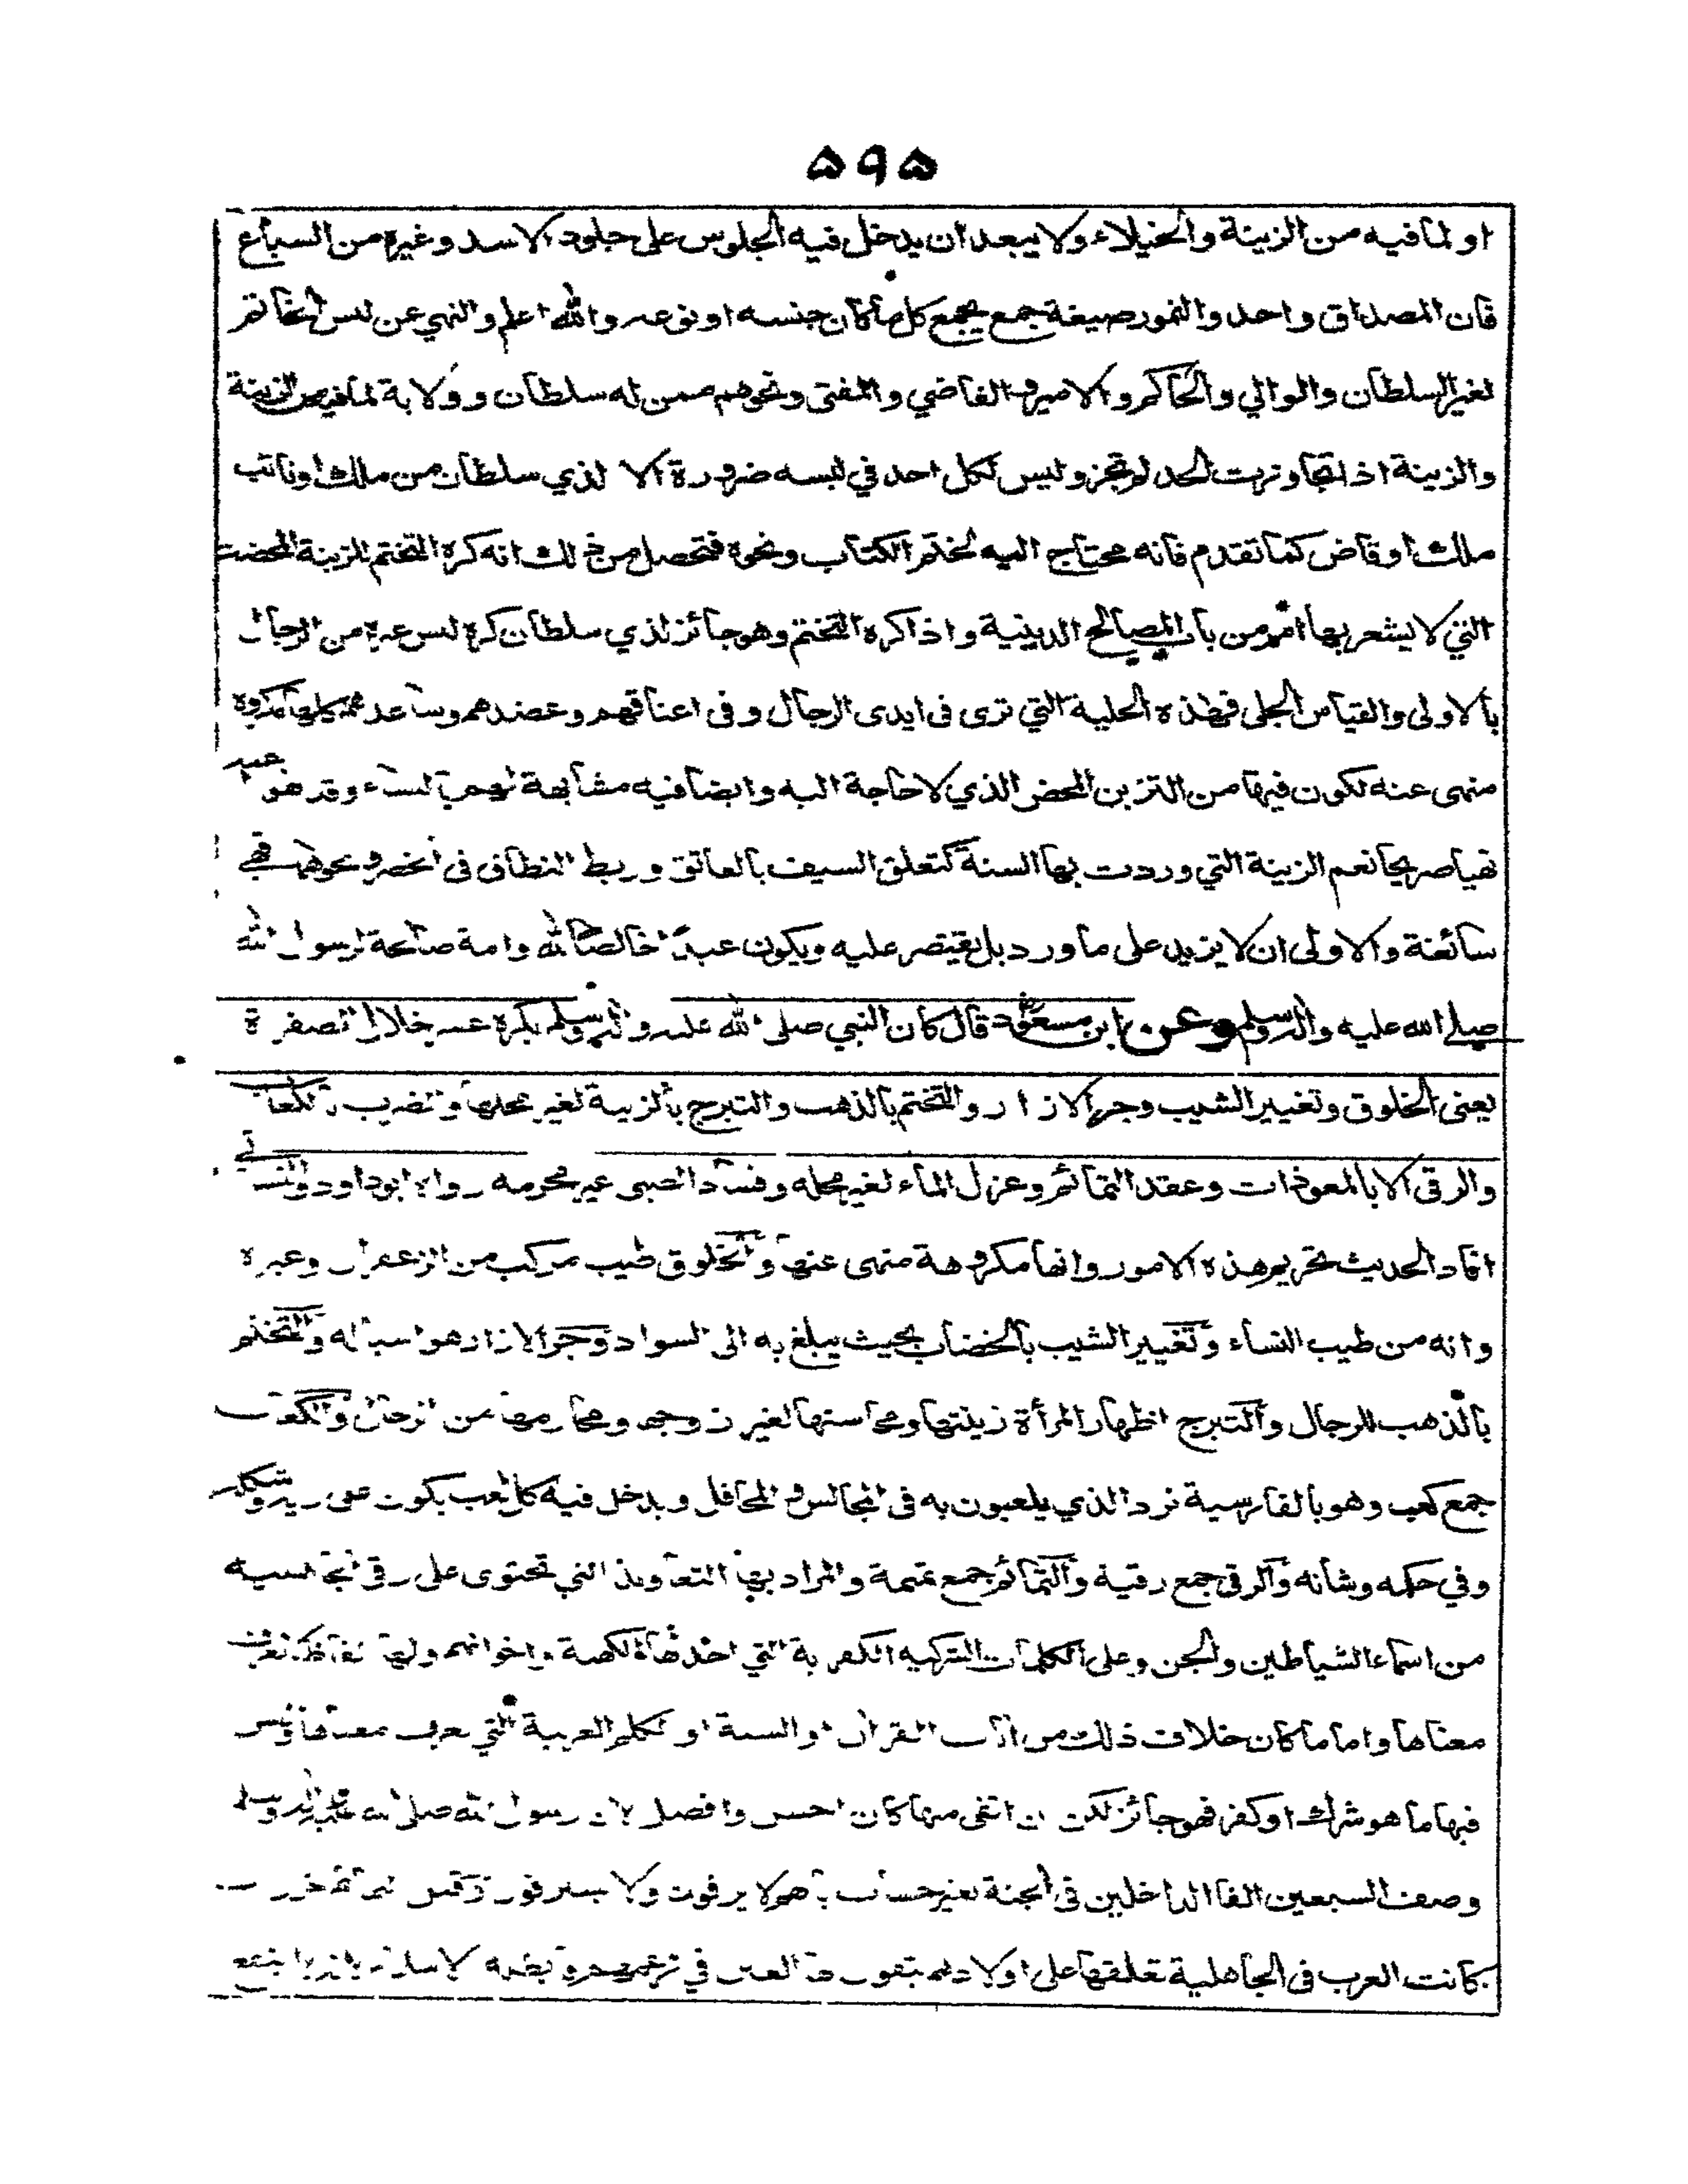 ۵۹۵
او لما فيه من الزينة والخيلاء ولا يبعد ان يدخل فيه الجلوس على جلود الاسد وغيره من السباع
فان المصداق واحد والنمور صيغة جمع يجمع كل ما كان جنسه او نوعه والله اعلم والنهي عن لبس الخاتم
لغير السلطان والوالي والحاكم والامير والقاضي والمفتى ونحوهم ممن له سلطان وولاية لما فيه من الزينة
والزينة اذا تجاوزت الحد لم تجز وليس لكل احد في لبسه ضرورة الا لذي سلطان من ملك او نائب
ملك او قاض كما تقدم فانه محتاج اليه لختم الكتاب ونحوه فتحصل من ذلك انه كره التختم للزينة المحضة
التي لا يشعر بها امر من باب المصالح الدينية واذا كره التختم وهو جائز لذي سلطان كره لبس غيره من الرجال
بالاولى والقياس الجلى فهذه الحلية التي ترى فى ايدى الرجال وفى اعناقهم وعضدهم وساعدهم كلها مكروه
منهى عنه لكون فيها من التزين المحض الذي لا حاجة اليه وايضا فيه مشابهة لهم بالنساء وقد نهوا عنه
نهيا صريحا نعم الزينة التي وردت بها السنة كتعلق السيف بالعاتق وربط النطاق فى الخصر ونحوهما فهى
سائغة والاولى ان لا يزيد على ما ورد بل يقتصر عليه ويكون عبدا خالصا لله وامة صالحة لرسول الله
صلى الله عليه واله وسلم وعن ابن مسعود قال كان النبي صلى الله عليه واله وسلم يكره عشر خلال الصفرة
يعنى الخلوق وتغيير الشيب وجر الازار والتختم بالذهب والتبرج بالزينة لغير محلها والضرب بالكعاب
والرقى الا بالمعوذات وعقد التمائم وعزل الماء لغير محله وفساد الصبى غير محرمه رواه ابو داود والنسائي
افاد الحديث تحريم هذه الامور وانها مكروهة منهى عنها والخلوق طيب مركب من الزعفران وغيره
وانه من طيب النساء وتغيير الشيب بالخضاب بحيث يبلغ به الى السواد وجر الازار هو اسباله والتختم
بالذهب للرجال والتبرج اظهار المرأة زينتها ومحاسنها لغير زوجها ومحارمها من الرجال والكعاب
جمع كعب وهو بالفارسية نرد الذي يلعبون به فى المجالس والمحافل ويدخل فيه كل لعب يكون على وشكله
وفي حكمه وشأنه والرقى جمع رقية والتمائم جمع تميمة والمراد بها التعاويذ التي تحتوى على رقى الجاهلية
من اسماء الشياطين والجن وعلى الكلمات الشركيه الكفرية التي اخذها الكهنة واخوانهم ولها الفاظ لا يعرف
معناها واما ما كان خلاف ذلك من ايات القران او السنة او الكلم العربية التي يعرف معناها وليس
فيها ما هو شرك او كفر فهو جائز لكن ان اتقى منها كان احسن وافضل لان رسول الله صلى الله عليه واله وسلم
وصف السبعين الفا الداخلين فى الجنة بغير حساب بانهم لا يرقون ولا يسترقون وقيل خرز
كانت العرب فى الجاهلية تعلقها على اولادهم يتقون بها العين في زعمهم وابطله الاسلام